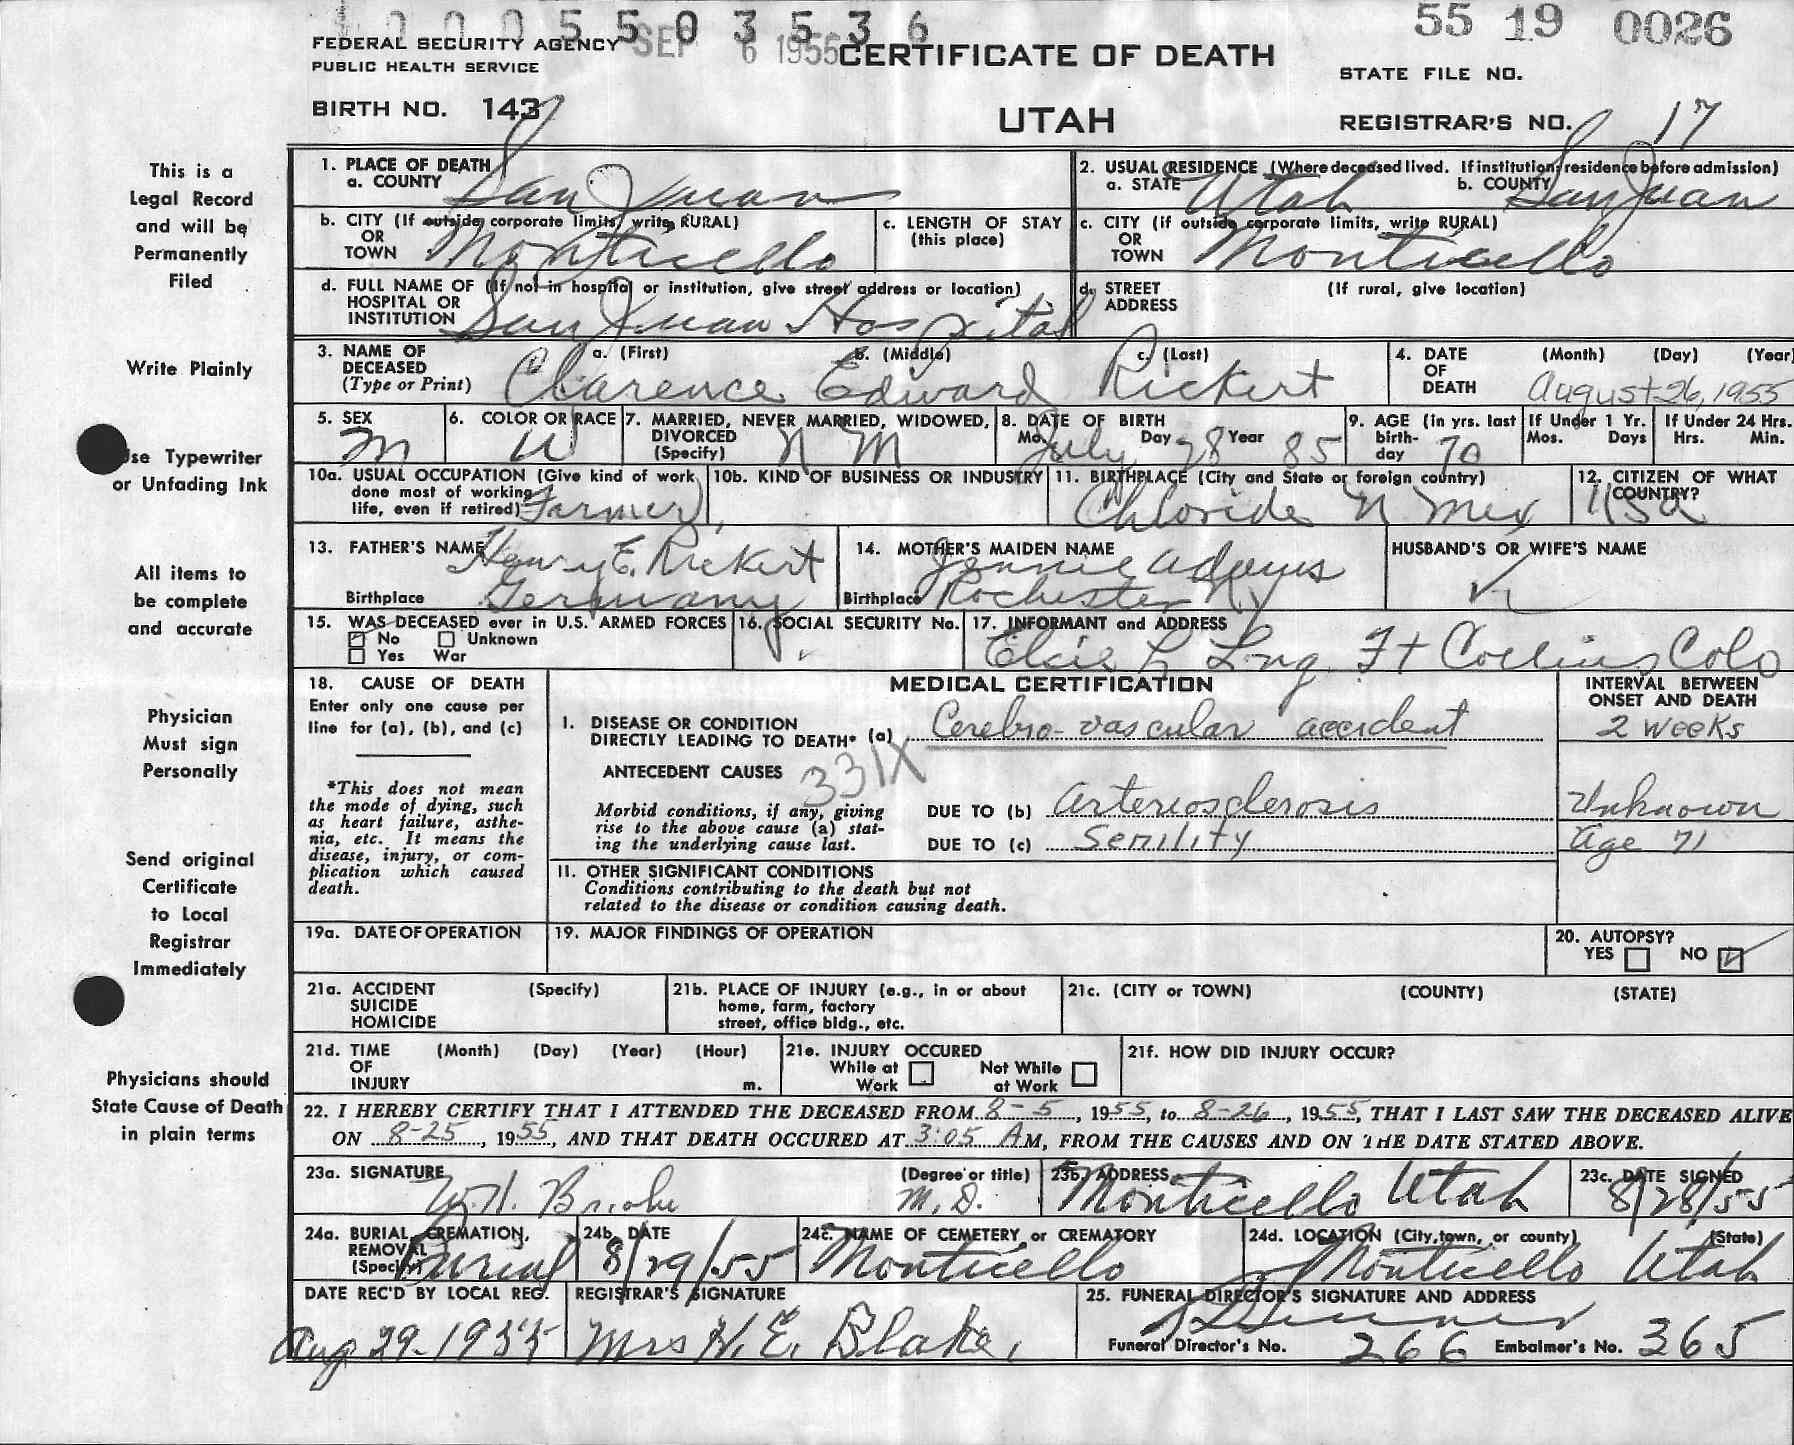 1 0 0 0 5 5 0 3 5 3 6
SEP 6 1955
55 19 0026
FEDERAL SECURITY AGENCY
PUBLIC HEALTH SERVICE
CERTIFICATE OF DEATH
STATE FILE NO.
BIRTH NO. 143
UTAH
REGISTRAR'S NO. 17
This is a
Legal Record
and will be
Permanently
Filed
Write Plainly
Use Typewriter
or Unfading Ink
All items to
be complete
and accurate
Physician
Must sign
Personally
Send original
Certificate
to Local
Registrar
Immediately
Physicians should
State Cause of Death
in plain terms
1. PLACE OF DEATH
a. COUNTY San Juan
2. USUAL RESIDENCE (Where deceased lived. If institution, residence before admission)
a. STATE Utah b. COUNTY San Juan
b. CITY (If outside corporate limits, write RURAL)
OR
TOWN Monticello
c. LENGTH OF STAY
(this place)
c. CITY (if outside corporate limits, write RURAL)
OR
TOWN Monticello
d. FULL NAME OF (If not in hospital or institution, give street address or location)
HOSPITAL OR
INSTITUTION San Juan Hospital
d. STREET (If rural, give location)
ADDRESS
3. NAME OF a. (First) b. (Middle) c. (Last)
DECEASED
(Type or Print) Clarence Edward Rickert
4. DATE (Month) (Day) (Year)
OF
DEATH August 26, 1955
5. SEX
M
6. COLOR OR RACE
W
7. MARRIED, NEVER MARRIED, WIDOWED,
DIVORCED
(Specify) N M
8. DATE OF BIRTH
Mo. July Day 28 Year 85
9. AGE (in yrs. last
birth-
day 70
If Under 1 Yr.
Mos. Days
If Under 24 Hrs.
Hrs. Min.
10a. USUAL OCCUPATION (Give kind of work
done most of working
life, even if retired) Farmer
10b. KIND OF BUSINESS OR INDUSTRY
11. BIRTHPLACE (City and State or foreign country)
Chloride N Mex
12. CITIZEN OF WHAT
COUNTRY?
USA
13. FATHER'S NAME Henry E. Rickert
Birthplace Germany
14. MOTHER'S MAIDEN NAME
Jennie Adams
Birthplace Rochester NY
HUSBAND'S OR WIFE'S NAME
15. WAS DECEASED ever in U.S. ARMED FORCES
No Unknown
Yes War
16. SOCIAL SECURITY No.
17. INFORMANT and ADDRESS
Elsie L Long Ft Collins Colo
18. CAUSE OF DEATH
Enter only one cause per
line for (a), (b), and (c)
*This does not mean
the mode of dying, such
as heart failure, asthe-
nia, etc. It means the
disease, injury, or com-
plication which caused
death.
MEDICAL CERTIFICATION
INTERVAL BETWEEN
ONSET AND DEATH
I. DISEASE OR CONDITION
DIRECTLY LEADING TO DEATH* (a) Cerebro-vascular accident 2 weeks
ANTECEDENT CAUSES 331X
Morbid conditions, if any, giving
rise to the above cause (a) stat-
ing the underlying cause last.
DUE TO (b) arteriosclerosis Unknown
DUE TO (c) Senility Age 71
II. OTHER SIGNIFICANT CONDITIONS
Conditions contributing to the death but not
related to the disease or condition causing death.
19a. DATE OF OPERATION
19. MAJOR FINDINGS OF OPERATION
20. AUTOPSY?
YES NO
21a. ACCIDENT (Specify)
SUICIDE
HOMICIDE
21b. PLACE OF INJURY (e.g., in or about
home, farm, factory
street, office bldg., etc.
21c. (CITY or TOWN) (COUNTY) (STATE)
21d. TIME (Month) (Day) (Year) (Hour)
OF
INJURY m.
21e. INJURY OCCURED
While at Not While
Work at Work
21f. HOW DID INJURY OCCUR?
22. I HEREBY CERTIFY THAT I ATTENDED THE DECEASED FROM 8-5, 1955, to 8-26, 1955, THAT I LAST SAW THE DECEASED ALIVE
ON 8-25, 1955, AND THAT DEATH OCCURED AT 3:05 AM, FROM THE CAUSES AND ON THE DATE STATED ABOVE.
23a. SIGNATURE (Degree or title)
W.H. M.D.
23b. ADDRESS
Monticello Utah
23c. DATE SIGNED
8/28/55
24a. BURIAL, CREMATION,
REMOVAL
(Specify) Burial
24b. DATE
8/29/55
24c. NAME OF CEMETERY or CREMATORY
Monticello
24d. LOCATION (City, town, or county) (State)
Monticello Utah
DATE REC'D BY LOCAL REG.
Aug 29-1955
REGISTRAR'S SIGNATURE
Mrs H. E. Blake,
25. FUNERAL DIRECTOR'S SIGNATURE AND ADDRESS
Funeral Director's No. 266 Embalmer's No. 365